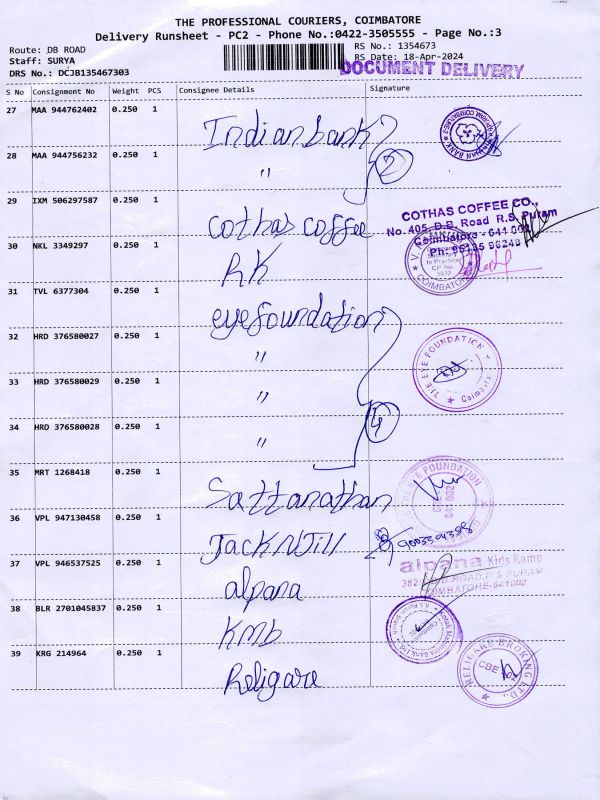 THE PROFESSIONAL COURIERS, COIMBATORE
Delivery Runsheet - PC2 - Phone No.:0422-3505555 - Page No.:3
Route: DB ROAD
Staff: SURYA
DRS No.: DCJB135467303
RS No.: 1354673
RS Date: 18-Apr-2024
DOCUMENT DELIVERY
S No Consignment No Weight PCS Consignee Details Signature
27 MAA 944762402 0.250 1 Indian bank
28 MAA 944756232 0.250 1 " 2
29 IXM 506297587 0.250 1 Cothas coffee
COTHAS COFFEE CO.,
No. 405, D.B. Road R.S. Puram
Coimbatore - 641 002
30 NKL 3349297 0.250 1 RK
31 TVL 6377304 0.250 1 eyefoundation
32 HRD 376580027 0.250 1 "
THE EYE FOUNDATION
33 HRD 376580029 0.250 1 "
34 HRD 376580028 0.250 1 " 4
35 MRT 1268418 0.250 1 Sattanathan
36 VPL 947130458 0.250 1 Jack N Jill
37 VPL 946537525 0.250 1 alpana
alpana Kids Kamp
COIMBATORE-641002
38 BLR 2701045837 0.250 1 KMB
39 KRG 214964 0.250 1 Religare
RELIGARE BROKING LTD.,